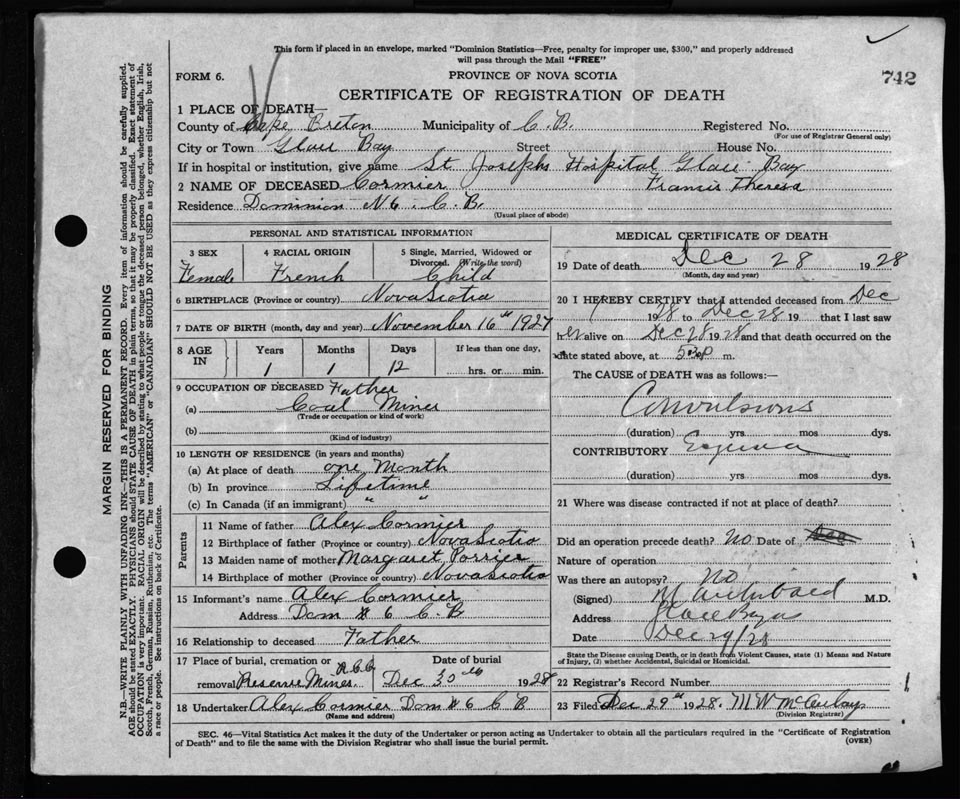 This form if placed in an envelope, marked "Dominion Statistics—Free, penalty for improper use, $300," and properly addressed
will pass through the Mail "FREE"
FORM 6.
PROVINCE OF NOVA SCOTIA
742
CERTIFICATE OF REGISTRATION OF DEATH
1 PLACE OF DEATH—
County of Cape Breton Municipality of C.B. Registered No.
(For use of Registrar General only)
City or Town Glace Bay Street House No.
If in hospital or institution, give name St Josephs Hospital Glace Bay
2 NAME OF DECEASED Cormier Francis Theresa
Residence Dominion No 6 C.B.
(Usual place of abode)
PERSONAL AND STATISTICAL INFORMATION
3 SEX 4 RACIAL ORIGIN 5 Single, Married, Widowed or Divorced. (Write the word)
Female French Child
6 BIRTHPLACE (Province or country) Nova Scotia
7 DATE OF BIRTH (month, day and year) November 16th 1927
8 AGE IN Years Months Days If less than one day,
1 1 12 hrs. or min.
9 OCCUPATION OF DECEASED Father
(a) Coal Miner
(Trade or occupation or kind of work)
(b)
(Kind of industry)
10 LENGTH OF RESIDENCE (in years and months)
(a) At place of death one Month
(b) In province Lifetime
(c) In Canada (if an immigrant) " "
Parents
11 Name of father Alex Cormier
12 Birthplace of father (Province or country) Nova Scotia
13 Maiden name of mother Margaret Porrier
14 Birthplace of mother (Province or country) Nova Scotia
15 Informant's name Alex Cormier
Address Dom # 6 C B
16 Relationship to deceased Father
17 Place of burial, cremation or removal Reserve Mines R.C.C. Date of burial Dec 30th 1928
18 Undertaker Alex Cormier Dom # 6 C B
(Name and address)
MEDICAL CERTIFICATE OF DEATH
19 Date of death Dec 28 1928
(Month, day and year)
20 I HEREBY CERTIFY that I attended deceased from Dec
1928 to Dec 28 19 that I last saw
her alive on Dec 28 1928 and that death occurred on the
date stated above, at m.
The CAUSE of DEATH was as follows:—
Convulsions
(duration) yrs mos dys.
CONTRIBUTORY Eczema
(duration) yrs. mos dys.
21 Where was disease contracted if not at place of death?
Did an operation precede death? No Date of
Nature of operation
Was there an autopsy? No
(Signed) M Archibald M.D.
Address Glace Bay NS
Date Dec 29/28
State the Disease causing Death, or in death from Violent Causes, state (1) Means and Nature
of Injury, (2) whether Accidental, Suicidal or Homicidal.
22 Registrar's Record Number
23 Filed Dec 29th 1928. M W McAulay
(Division Registrar)
SEC. 46—Vital Statistics Act makes it the duty of the Undertaker or person acting as Undertaker to obtain all the particulars required in the "Certificate of Registration
of Death" and to file the same with the Division Registrar who shall issue the burial permit.
(OVER)
MARGIN RESERVED FOR BINDING
N.B.—WRITE PLAINLY WITH UNFADING INK—THIS IS A PERMANENT RECORD. Every item of information should be carefully supplied.
AGE should be stated EXACTLY. PHYSICIANS should STATE CAUSE OF DEATH in plain terms, so that it may be properly classified. Exact statement of
OCCUPATION is very important. RACIAL ORIGIN will be described by stating to what people or tongue the deceased person belonged, whether English, Irish,
Scotch, French, German, Russian, Ruthenian, etc. The terms "AMERICAN" or "CANADIAN" SHOULD NOT BE USED as they express citizenship but not
a race or people. See instructions on back of Certificate.